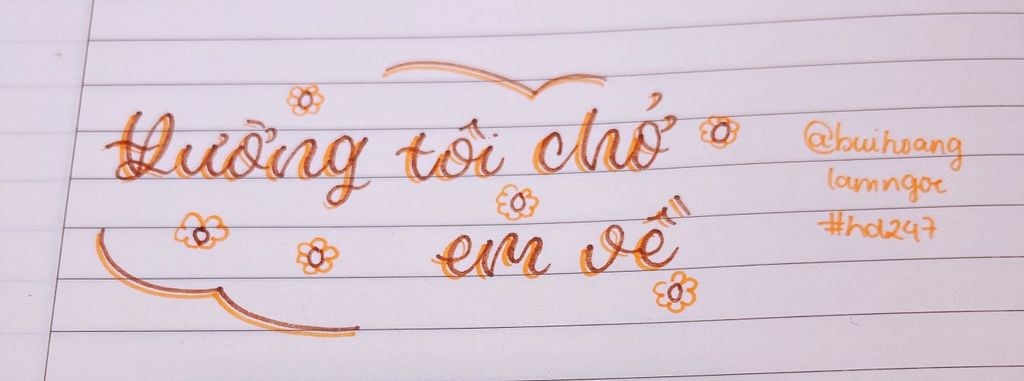 Đường tôi chở
em về
@buihoang
lamngoc
#hd247